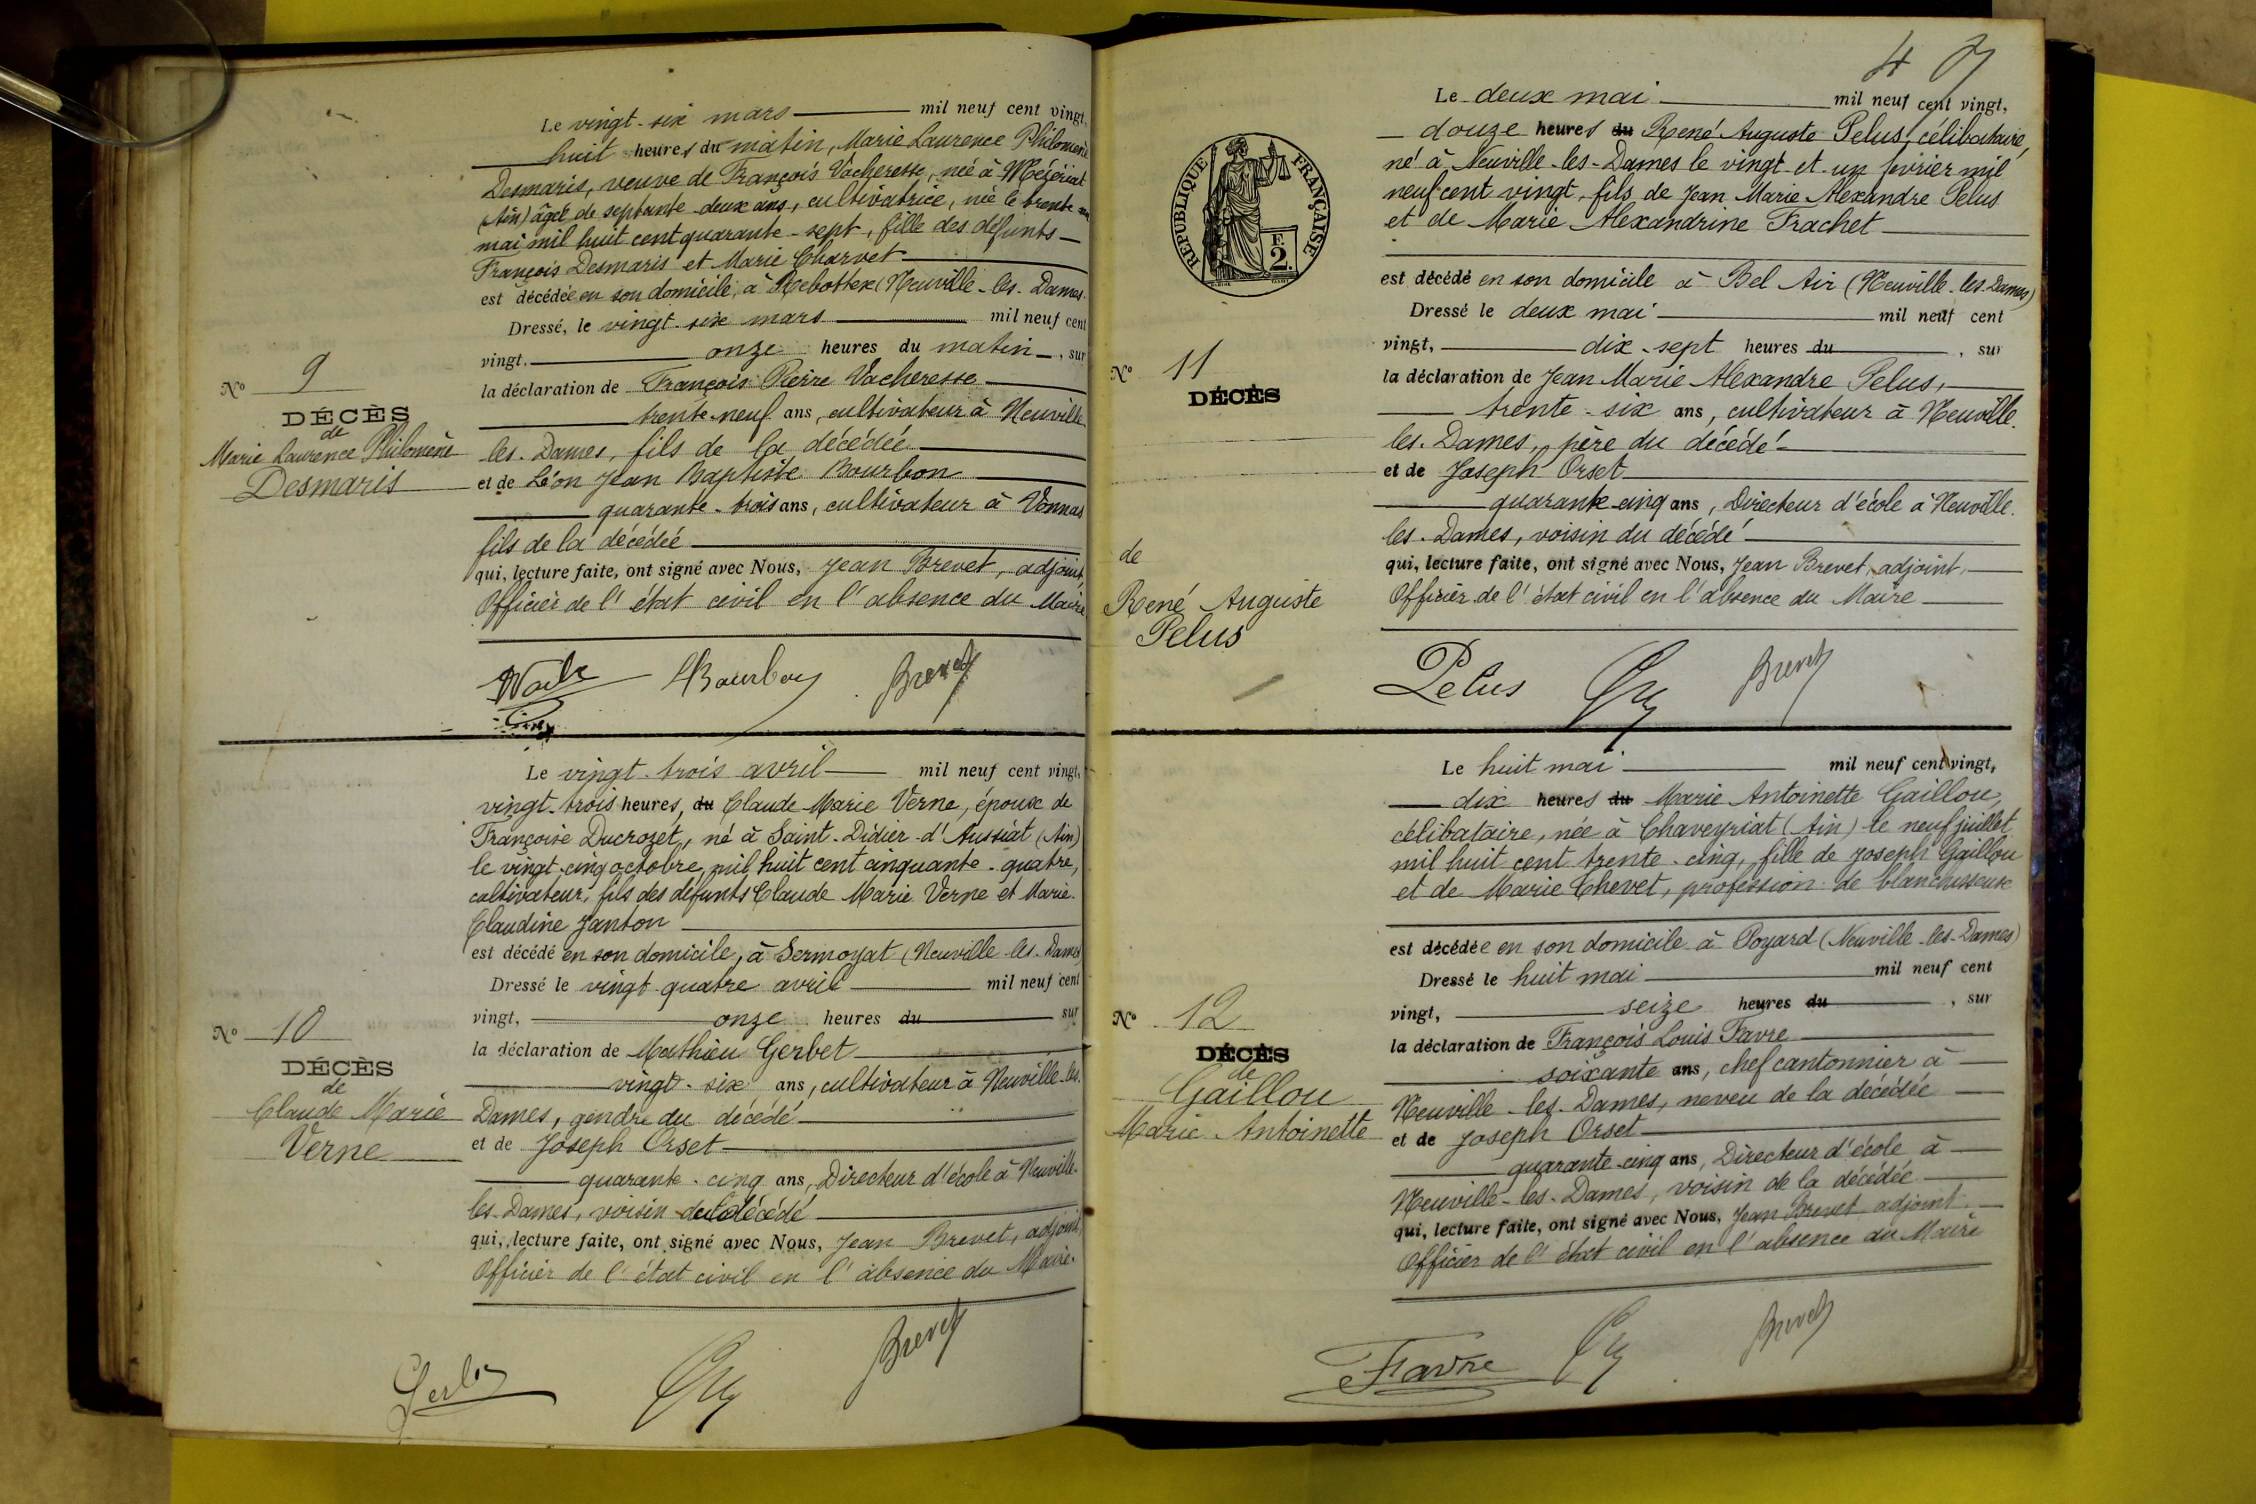 Le vingt-six mars mil neuf cent vingt,
huit heures du matin, Marie Laurence Philomène
Desmaris, veuve de François Vacheresse, née à Mézériat
(Ain) âgée de septante-deux ans, cultivatrice, née le trente
mai mil huit cent quarante-sept, fille des défunts
François Desmaris et Marie Charvet
est décédée en son domicile, à Rebottex (Neuville-les-Dames
Dressé, le vingt-six mars mil neuf cent
vingt. onze heures du matin, sur
la déclaration de François Pierre Vacheresse
trente-neuf ans, cultivateur à Neuville
les-Dames, fils de la décédée
et de Léon Jean Baptiste Bourbon
quarante-trois ans, cultivateur à Vonnas
fils de la décédée
qui, lecture faite, ont signé avec Nous, Jean Brevet, adjoint,
Officier de l'état civil en l'absence du Maire
N° 9
DÉCÈS
de
Marie Laurence Philomène
Desmaris
Bourbon Brevet
Le vingt-trois avril mil neuf cent vingt,
vingt-trois heures, du Claude Marie Verne, époux de
Françoise Ducrozet, né à Saint-Didier-d'Aussiat (Ain)
le vingt-cinq octobre mil huit cent cinquante-quatre,
cultivateur, fils des défunts Claude Marie Verne et Marie-
Claudine Janton
est décédé en son domicile, à Sermoyat (Neuville-les-Dames)
Dressé le vingt-quatre avril mil neuf cent
vingt, onze heures du sur
la déclaration de Mathieu Gerbet
vingt-six ans, cultivateur à Neuville-les-
Dames, gendre du décédé
et de Joseph Orset
quarante-cinq ans, Directeur d'école à Neuville-
les-Dames, voisin du décédé
qui, lecture faite, ont signé avec Nous, Jean Brevet, adjoint,
Officier de l'état civil en l'absence du Maire.
N° 10
DÉCÈS
de
Claude Marie
Verne
Brevet
RÉPUBLIQUE FRANÇAISE
F.
2.
Le deux mai mil neuf cent vingt,
douze heures du René Auguste Pelus, célibataire,
né à Neuville-les-Dames le vingt-et-un février mil
neuf cent vingt, fils de Jean Marie Alexandre Pelus
et de Marie Alexandrine Frachet
est décédé en son domicile à Bel Air (Neuville-les-Dames)
Dressé le deux mai mil neuf cent
vingt, dix-sept heures du , sur
la déclaration de Jean Marie Alexandre Pelus,
trente-six ans, cultivateur à Neuville-
les-Dames, père du décédé
et de Joseph Orset
quarante-cinq ans, Directeur d'école à Neuville-
les-Dames, voisin du décédé
qui, lecture faite, ont signé avec Nous, Jean Brevet, adjoint,
Officier de l'état civil en l'absence du Maire
N° 11
DÉCÈS
de
René Auguste
Pelus
Pelus Brevet
Le huit mai mil neuf cent vingt,
dix heures du Marie Antoinette Gaillou,
célibataire, née à Chaveyriat (Ain) le neuf juillet
mil huit cent trente-cinq, fille de Joseph Gaillou
et de Marie Chevet, profession de blanchisseuse
est décédée en son domicile à Poyard (Neuville-les-Dames)
Dressé le huit mai mil neuf cent
vingt, seize heures du , sur
la déclaration de François Louis Favre
soixante ans, chef cantonnier à
Neuville-les-Dames, neveu de la décédée
et de Joseph Orset
quarante-cinq ans, Directeur d'école à
Neuville-les-Dames, voisin de la décédée
qui, lecture faite, ont signé avec Nous, Jean Brevet adjoint,
Officier de l'état civil en l'absence du Maire
N° 12
DÉCÈS
de
Gaillou
Marie Antoinette
Favre Brevet